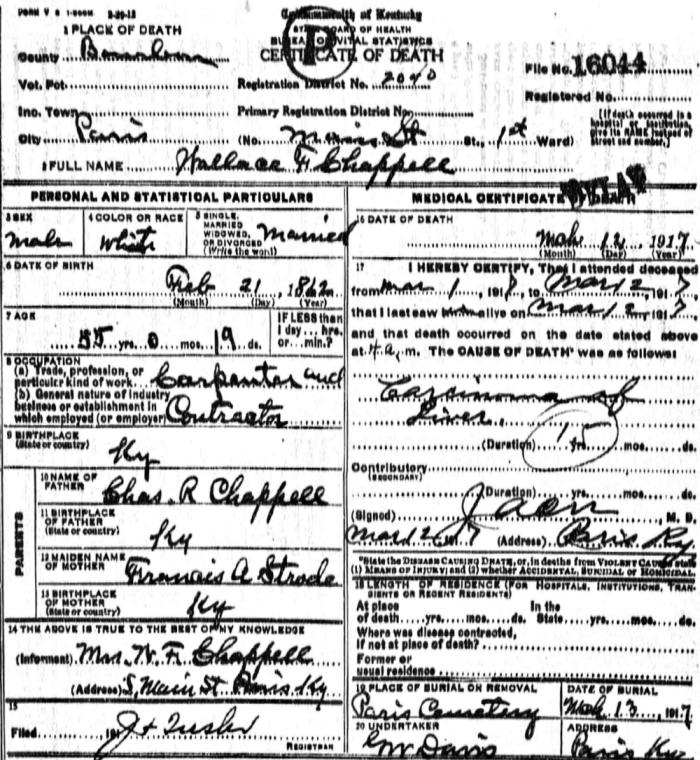 FORM V S 1-500M 3-20-12
Commonwealth of Kentucky
STATE BOARD OF HEALTH
BUREAU OF VITAL STATISTICS
CERTIFICATE OF DEATH
1 PLACE OF DEATH
County Bourbon
Vot. Pct.
Registration District No. 2040
File No. 16044
Inc. Town
Primary Registration District No.
Registered No.
City Paris (No. Main St St., 1st Ward)
[If death occurred in a hospital or institution, give its NAME instead of street and number.]
2 FULL NAME Wallace F. Chappell
PERSONAL AND STATISTICAL PARTICULARS
3 SEX
male
4 COLOR OR RACE
white
5 SINGLE, MARRIED WIDOWED, OR DIVORCED (Write the word)
Married
6 DATE OF BIRTH
Feb 21, 1862
(Month) (Day) (Year)
7 AGE
55 yrs. 0 mos. 19 ds.
IF LESS than 1 day... hrs. or... min.?
8 OCCUPATION
(a) Trade, profession, or particular kind of work Carpenter and
(b) General nature of industry business or establishment in which employed (or employer) Contractor
9 BIRTHPLACE
(State or country) Ky
PARENTS
10 NAME OF FATHER
Chas. R Chappell
11 BIRTHPLACE OF FATHER
(State or country) Ky
12 MAIDEN NAME OF MOTHER
Francis A Strode
13 BIRTHPLACE OF MOTHER
(State or country) Ky
14 THE ABOVE IS TRUE TO THE BEST OF MY KNOWLEDGE
(Informant) Mrs. W. F. Chappell
(Address) S, Main St. Paris Ky
15
Filed 191
REGISTRAR
MEDICAL CERTIFICATE OF DEATH
16 DATE OF DEATH
Mch 12 1917
(Month) (Day) (Year)
17 I HEREBY CERTIFY, That I attended deceased
from Mar 1, 1917, to Mar 12, 1917
that I last saw him alive on Mar 12, 1917,
and that death occurred on the date stated above
at m. The CAUSE OF DEATH* was as follows:
Carcinoma of
Liver
(Duration) yrs. mos. ds.
Contributory
(SECONDARY)
(Duration) yrs. mos. ds.
(Signed) M. D.
Mar 12 1917 (Address) Paris Ky
*State the DISEASE CAUSING DEATH, or, in deaths from VIOLENT CAUSES state (1) MEANS OF INJURY; and (2) whether ACCIDENTAL, SUICIDAL or HOMICIDAL.
18 LENGTH OF RESIDENCE (FOR HOSPITALS, INSTITUTIONS, TRANSIENTS OR RECENT RESIDENTS)
At place of death yrs. mos. ds. In the State yrs. mos. ds.
Where was disease contracted, if not at place of death?
Former or usual residence
19 PLACE OF BURIAL OR REMOVAL
Paris Cemetery
DATE OF BURIAL
Mch 13 1917
20 UNDERTAKER
GW Davis
ADDRESS
Paris Ky